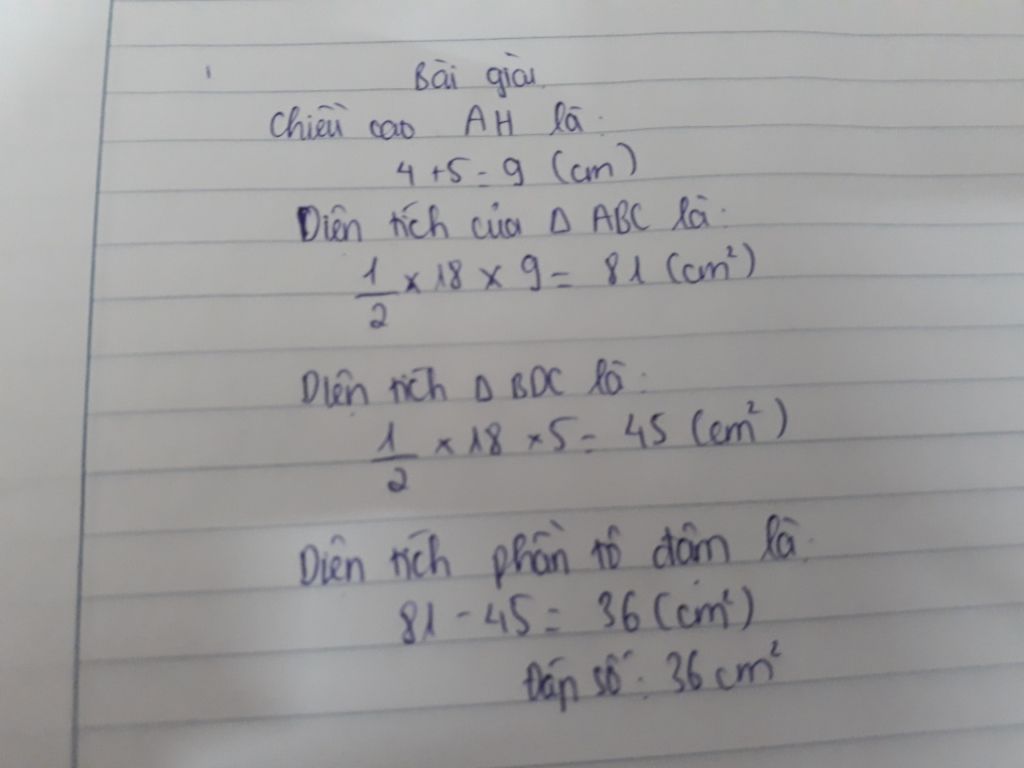 Bài giải
Chiều cao AH là:
4 + 5 = 9 (cm)
Diện tích của Δ ABC là:
1/2 × 18 × 9 = 81 (cm²)
Diện tích Δ BDC là:
1/2 × 18 × 5 = 45 (cm²)
Diện tích phần tô đậm là:
81 - 45 = 36 (cm²)
Đáp số: 36 cm²